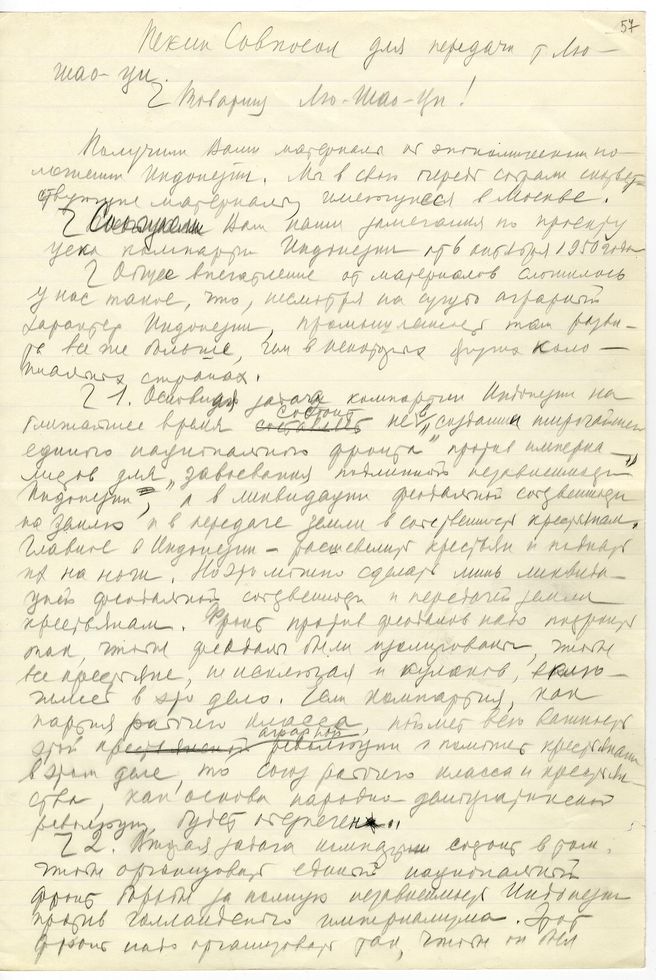 57
Пекин Совпосол для передачи т Лю-
шао-ци.
Товарищ Лю-Шао-Ци!
Получили Ваши материалы об экономическом по-
ложении Индонезии. Мы в свою очередь собрали соответ-
ствующие материалы, имеющиеся в Москве.
Сообщаем Вам наши замечания по проекту
цека компартии Индонезии от 6 октября 1950 года
Общее впечатление от материалов сложилось
у нас такое, что, несмотря на сугубо аграрный
характер Индонезии, промышленность там разви-
та все же больше, чем в некоторых других коло-
ниальных странах.
1. Основная задача компартии Индонезии на
ближайшее время состоит не в „создании широчайшего
единого национального фронта" против империа-
листов для „завоевания подлинной независимости"
Индонезии, а в ликвидации феодальной собственности
на землю и в передаче земли в собственность крестьянам.
Главное в Индонезии – расшевелить крестьян и поднять
их на ноги. Но это можно сделать лишь ликвида-
цией феодальной собственности и передачей земли
крестьянам. Фронт против феодалов надо построить
так, чтобы феодалы были изолированы, чтобы
все крестьяне, не исключая и кулаков,
в это дело. Если компартия, как
партия рабочего класса, поймет всю важность
этой аграрной революции и поможет крестьянам
в этом деле, то союз рабочего класса и крестьян-
ства, как основа народно-демократической
революции, будет обеспечен.
2. Вторая задача компартии состоит в том,
чтобы организовать единый национальный
фронт борьбы за полную независимость Индонезии
против голландского империализма. Этот
фронт надо организовать так, чтобы он был